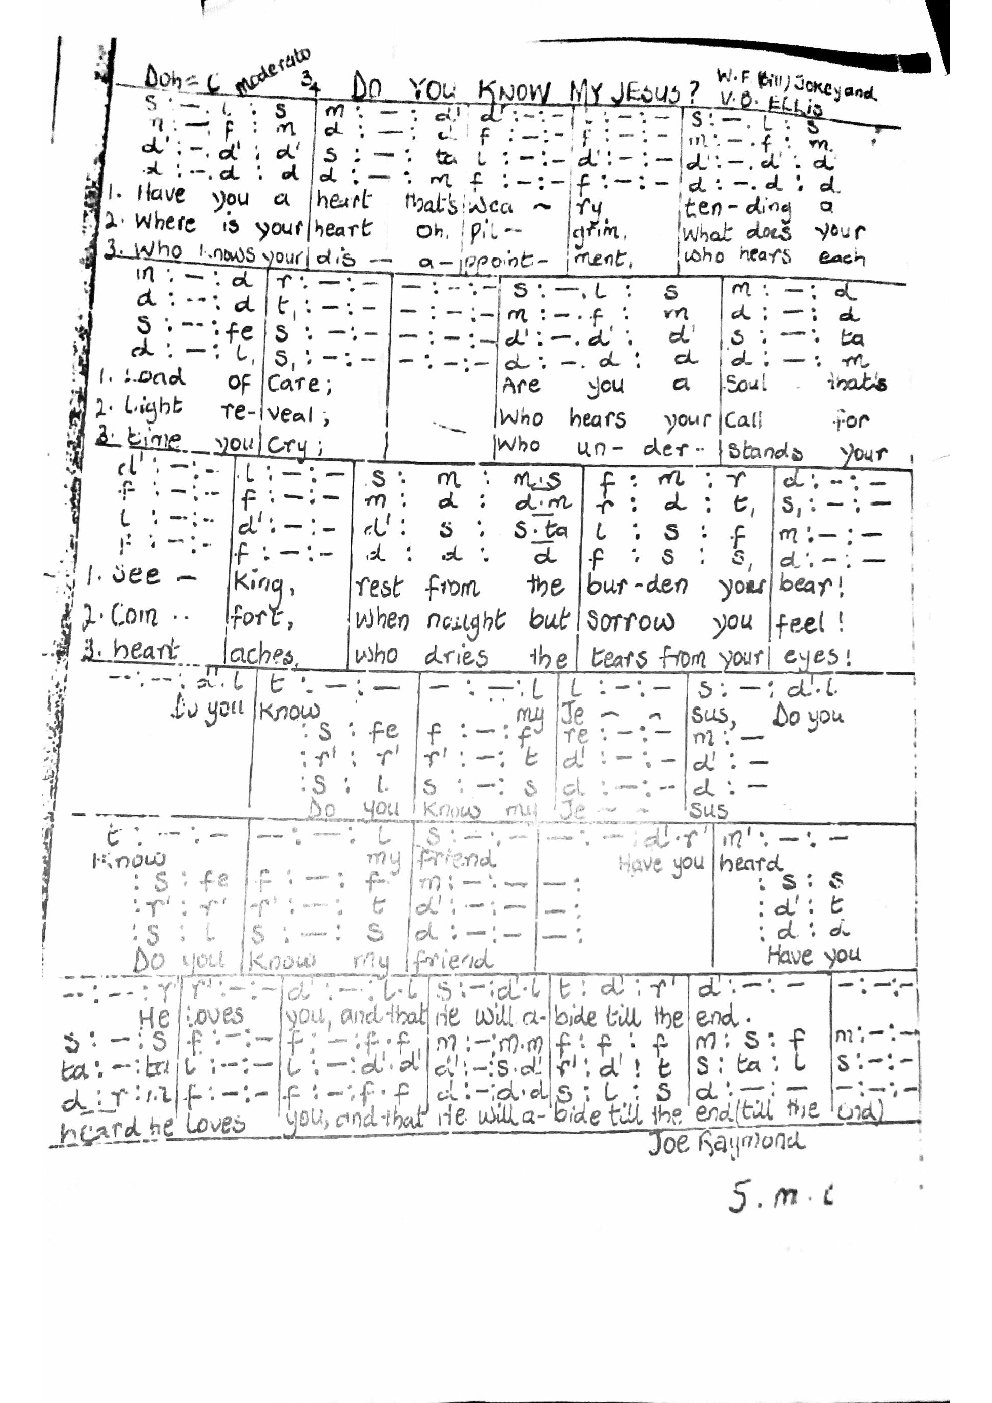 Doh = C moderato 3/4 DO YOU KNOW MY JESUS? W.F (Bill) Jokey and
V.B. ELLis
s : –. l : s | m : – : d' | d' : – : – | l : – : – | s : –. l : s
m : –. f : m | d : – : d | f : – : – | f : – : – | m : –. f : m
d' : –. d' : d' | s : – : ta | l : – : – | d' : – : – | d' : –. d' : d
d : –. d : d | d : – : m | f : – : – | f : – : – | d : –. d : d
1. Have you a | heart that's | wea ~ | ry | ten-ding a
2. Where is your | heart oh, | pil-- | grim, | What does your
3. Who knows your | dis – a- | ppoint- | ment, | who hears each
m : – : d | r : – : – | – : – : – | s : –. l : s | m : – : d
d : – : d | t, : – : – | – : – : – | m : –. f : m | d : – : d
s : – : fe | s : – : – | – : – : – | d' : –. d' : d' | s : – : ta
d : – : l, | s, : – : – | – : – : – | d : –. d : d | d : – : m
1. Load of | Care; | | Are you a | Soul that's
2. Light re- | veal; | | Who hears your | Call for
3. time you | Cry; | | Who un- der-- | stands your
d' : – : – | l : – : – | s : m : m.s | f : m : r | d : – : –
f : – : – | f : – : – | m : d : d.m | r : d : t, | s, : – : –
l : – : – | d' : – : – | d' : s : s.ta | l : s : f | m : – : –
f : – : – | f : – : – | d : d : d | f : s : s, | d : – : –
1. See – | King, | rest from the | bur-den your | bear!
2. Com -- | fort, | when naught but | Sorrow you | feel!
3. heart | aches, | who dries the | tears from your | eyes!
– : – : d'.l | t : – : – | – : – : l | l : – : – | s : – : d'.l
Do you | Know | my | Je ~ ~ | sus, Do you
: s : fe | f : – : f | re : – : – | m : –
: r' : r' | r' : – : t | d' : – : – | d' : –
: s : l | s : – : s | d : – : – | d : –
Do you | Know my | Je – – | sus
t : – : – | – : – : l | s : – : – | – : – : d'.r' | m' : – : –
Know | my | friend | Have you | heard
: s : fe | f : – : f | m : – : – | – : | : s : s
: r' : r' | r' : – : t | d' : – : – | – : | : d' : t
: s : l | s : – : s | d : – : – | – : | : d : d
Do you | Know my | friend | Have you
– : – : r' | r' : – : – | d' : – : l.l | s : – : d'.l | t : d' : r' | d' : – : – | – : – : –
He | loves | you, and that | He will a- | bide till the | end.
s : – : s | f : – : – | f : – : f.f | m : – : m.m | f : f : f | m : s : f | m : – : –
ta : – : ta | l : – : – | l : – : d'.d' | d' : – : s.d' | r' : d' : t | s : ta : l | s : – : –
f : – : – | f : – : f.f | d : – : d.d | s : l : s | d : – : – | – : – : –
heard he | loves | you, and that | He will a- | bide till the | end (till the | end)
Joe Raymond